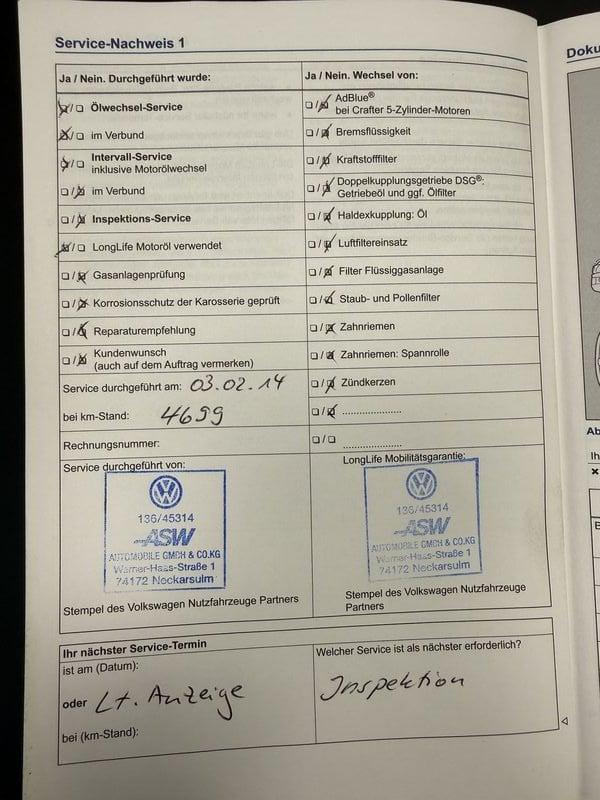 Service-Nachweis 1
Doku
Ja / Nein. Durchgeführt wurde:
Ölwechsel-Service
im Verbund
Intervall-Service
inklusive Motorölwechsel
im Verbund
Inspektions-Service
LongLife Motoröl verwendet
Gasanlagenprüfung
Korrosionsschutz der Karosserie geprüft
Reparaturempfehlung
Kundenwunsch
(auch auf dem Auftrag vermerken)
Service durchgeführt am: 03.02.14
bei km-Stand: 4699
Rechnungsnummer:
Ja / Nein. Wechsel von:
AdBlue®
bei Crafter 5-Zylinder-Motoren
Bremsflüssigkeit
Kraftstofffilter
Doppelkupplungsgetriebe DSG®:
Getriebeöl und ggf. Ölfilter
Haldexkupplung: Öl
Luftfiltereinsatz
Filter Flüssiggasanlage
Staub- und Pollenfilter
Zahnriemen
Zahnriemen: Spannrolle
Zündkerzen
Service durchgeführt von:
136/45314
ASW
AUTOMOBILE GMBH & CO.KG
Werner-Haas-Straße 1
74172 Neckarsulm
Stempel des Volkswagen Nutzfahrzeuge Partners
LongLife Mobilitätsgarantie:
136/45314
ASW
AUTOMOBILE GMBH & CO.KG
Werner-Haas-Straße 1
74172 Neckarsulm
Stempel des Volkswagen Nutzfahrzeuge
Partners
Ihr nächster Service-Termin
ist am (Datum):
oder Lt. Anzeige
bei (km-Stand):
Welcher Service ist als nächster erforderlich?
Inspektion
Ab
Ih